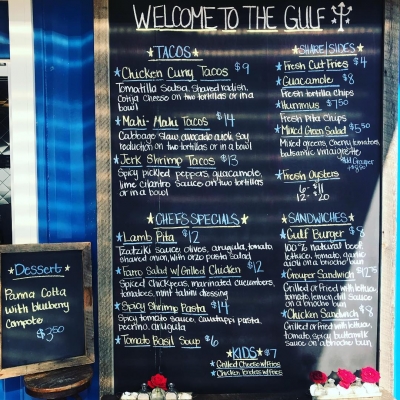 WELCOME TO THE GULF
TACOS
Chicken Curry Tacos $9
Tomatilla Salsa, shaved radish,
Cotija Cheese on two tortillas or in a
bowl
Mahi-Mahi Tacos $14
Cabbage slaw, avocado aioli, soy
reduction on two tortillas or in a bowl
Jerk Shrimp Tacos $13
Spicy pickled peppers, guacamole,
lime cilantro sauce on two tortillas
or in a bowl
CHEFS SPECIALS
Lamb Pita $12
Tzatziki sauce, olives, arugula, tomato,
shaved onion, with orzo pasta salad
Farro Salad w/ Grilled Chicken $12
Spiced Chickpeas, marinated cucumbers,
tomatoes, mint tahini dressing
Spicy Shrimp Pasta $14
Spicy tomato sauce, cavatappi pasta,
pecorino, arugula
Tomato Basil Soup $6
KIDS $7
Grilled Cheese w/ Fries
Chicken Tenders w/ Fries
SHARE/SIDES
Fresh Cut Fries $4
Guacamole $8
Fresh tortilla Chips
Hummus $7.50
Fresh Pita Chips
Mixed Green Salad $5.50
Mixed greens, cherry tomatoes,
balsamic vinaigrette
Add Grouper
Fresh Oysters
6- $11
12- $20
SANDWICHES
Gulf Burger $8
100% natural beef,
lettuce, tomato, garlic
aioli on a brioche bun
Grouper Sandwich $12.5
Grilled or fried with lettuce,
tomato, lemon dill sauce
on a brioche bun
Chicken Sandwich $8
Grilled or fried with lettuce,
tomato, spicy buttermilk
sauce on a brioche bun
Dessert
Panna Cotta
with blueberry
compote
$3.50